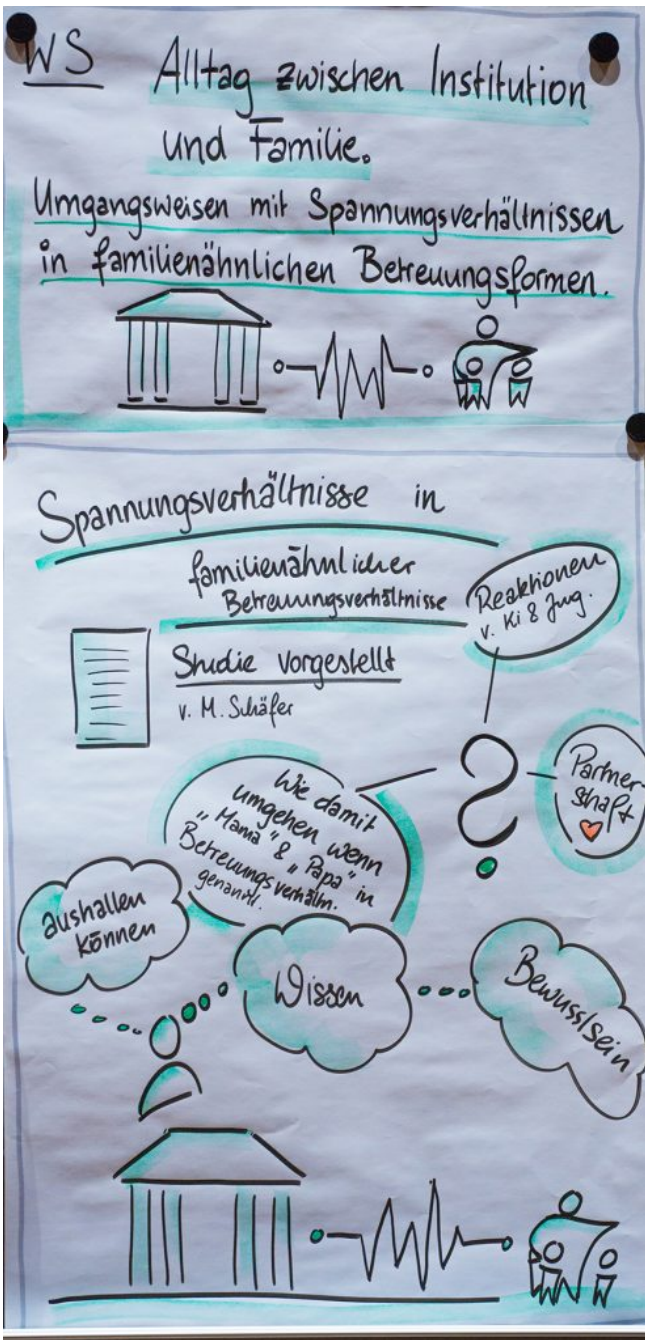 WS Alltag zwischen Institution
und Familie.
Umgangsweisen mit Spannungsverhältnissen
in familienähnlichen Betreuungsformen.
Spannungsverhältnisse in
familienähnlicher
Betreuungsverhältnisse
Reaktionen
v. Ki & Jug.
Studie vorgestellt
v. M. Schäfer
Partner
schaft
Wie damit
umgehen wenn
"Mama" & "Papa" in
Betreuungsverhältn.
genannt.
aushalten
können
Wissen
Bewusstsein